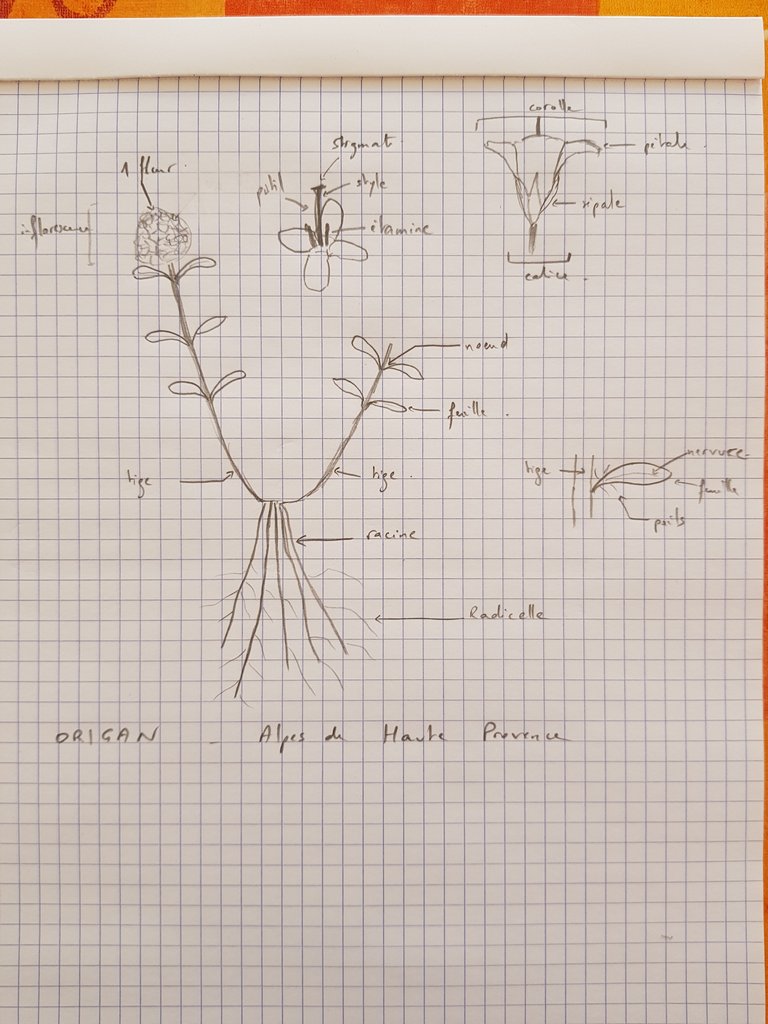 corolle
1 fleur
stigmat
pétale
pistil
style
sépale
inflorescence
étamine
calice
noeud
feuille
tige
tige
tige
nervure
feuille
poils
racine
Radicelle
ORIGAN - Alpes de Haute Provence